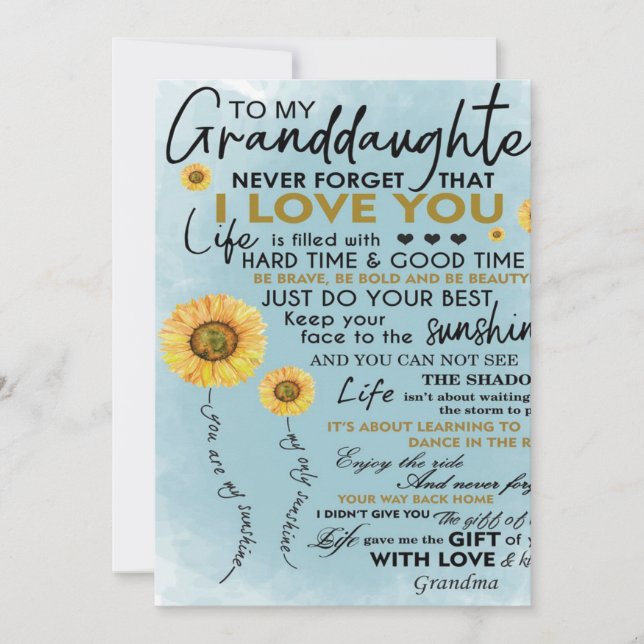 TO MY
Granddaughte
NEVER FORGET THAT
I LOVE YOU
Life is filled with
HARD TIME & GOOD TIME
BE BRAVE, BE BOLD AND BE BEAUTY
JUST DO YOUR BEST
Keep your
face to the sunshin
AND YOU CAN NOT SEE
THE SHADO
Life isn't about waiting
the storm to p
IT'S ABOUT LEARNING TO
DANCE IN THE R
Enjoy the ride
And never forg
YOUR WAY BACK HOME
I DIDN'T GIVE YOU The giff of
Life gave me the GIFT of y
WITH LOVE & ki
Grandma
you are my sunshine
my only sunshine